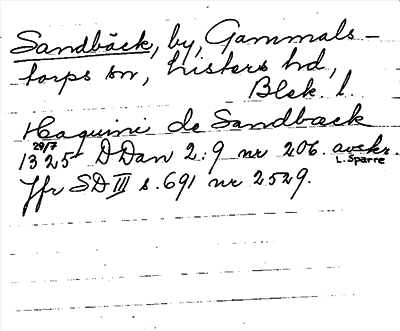 Sandbäck, by, Gammals-
torps sn, Listers hd,
Blek. l.
Haquini de Sandbæck
29/7
1325 DDan 2:9 nr 206. avskr.
L. Sparre
Jfr SD III s. 691 nr 2529.